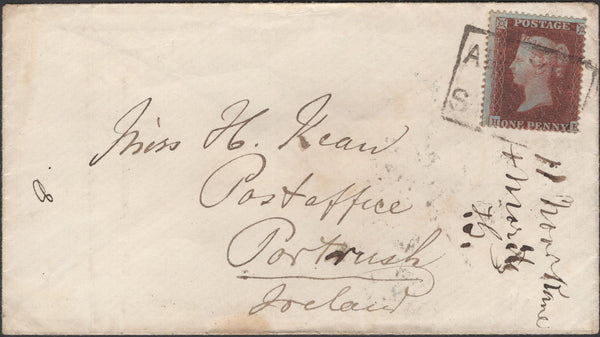 POSTAGE
A
S
H ONE PENNY E
Miss H. Kean
Postoffice
Portrush
Ireland
11
4 March